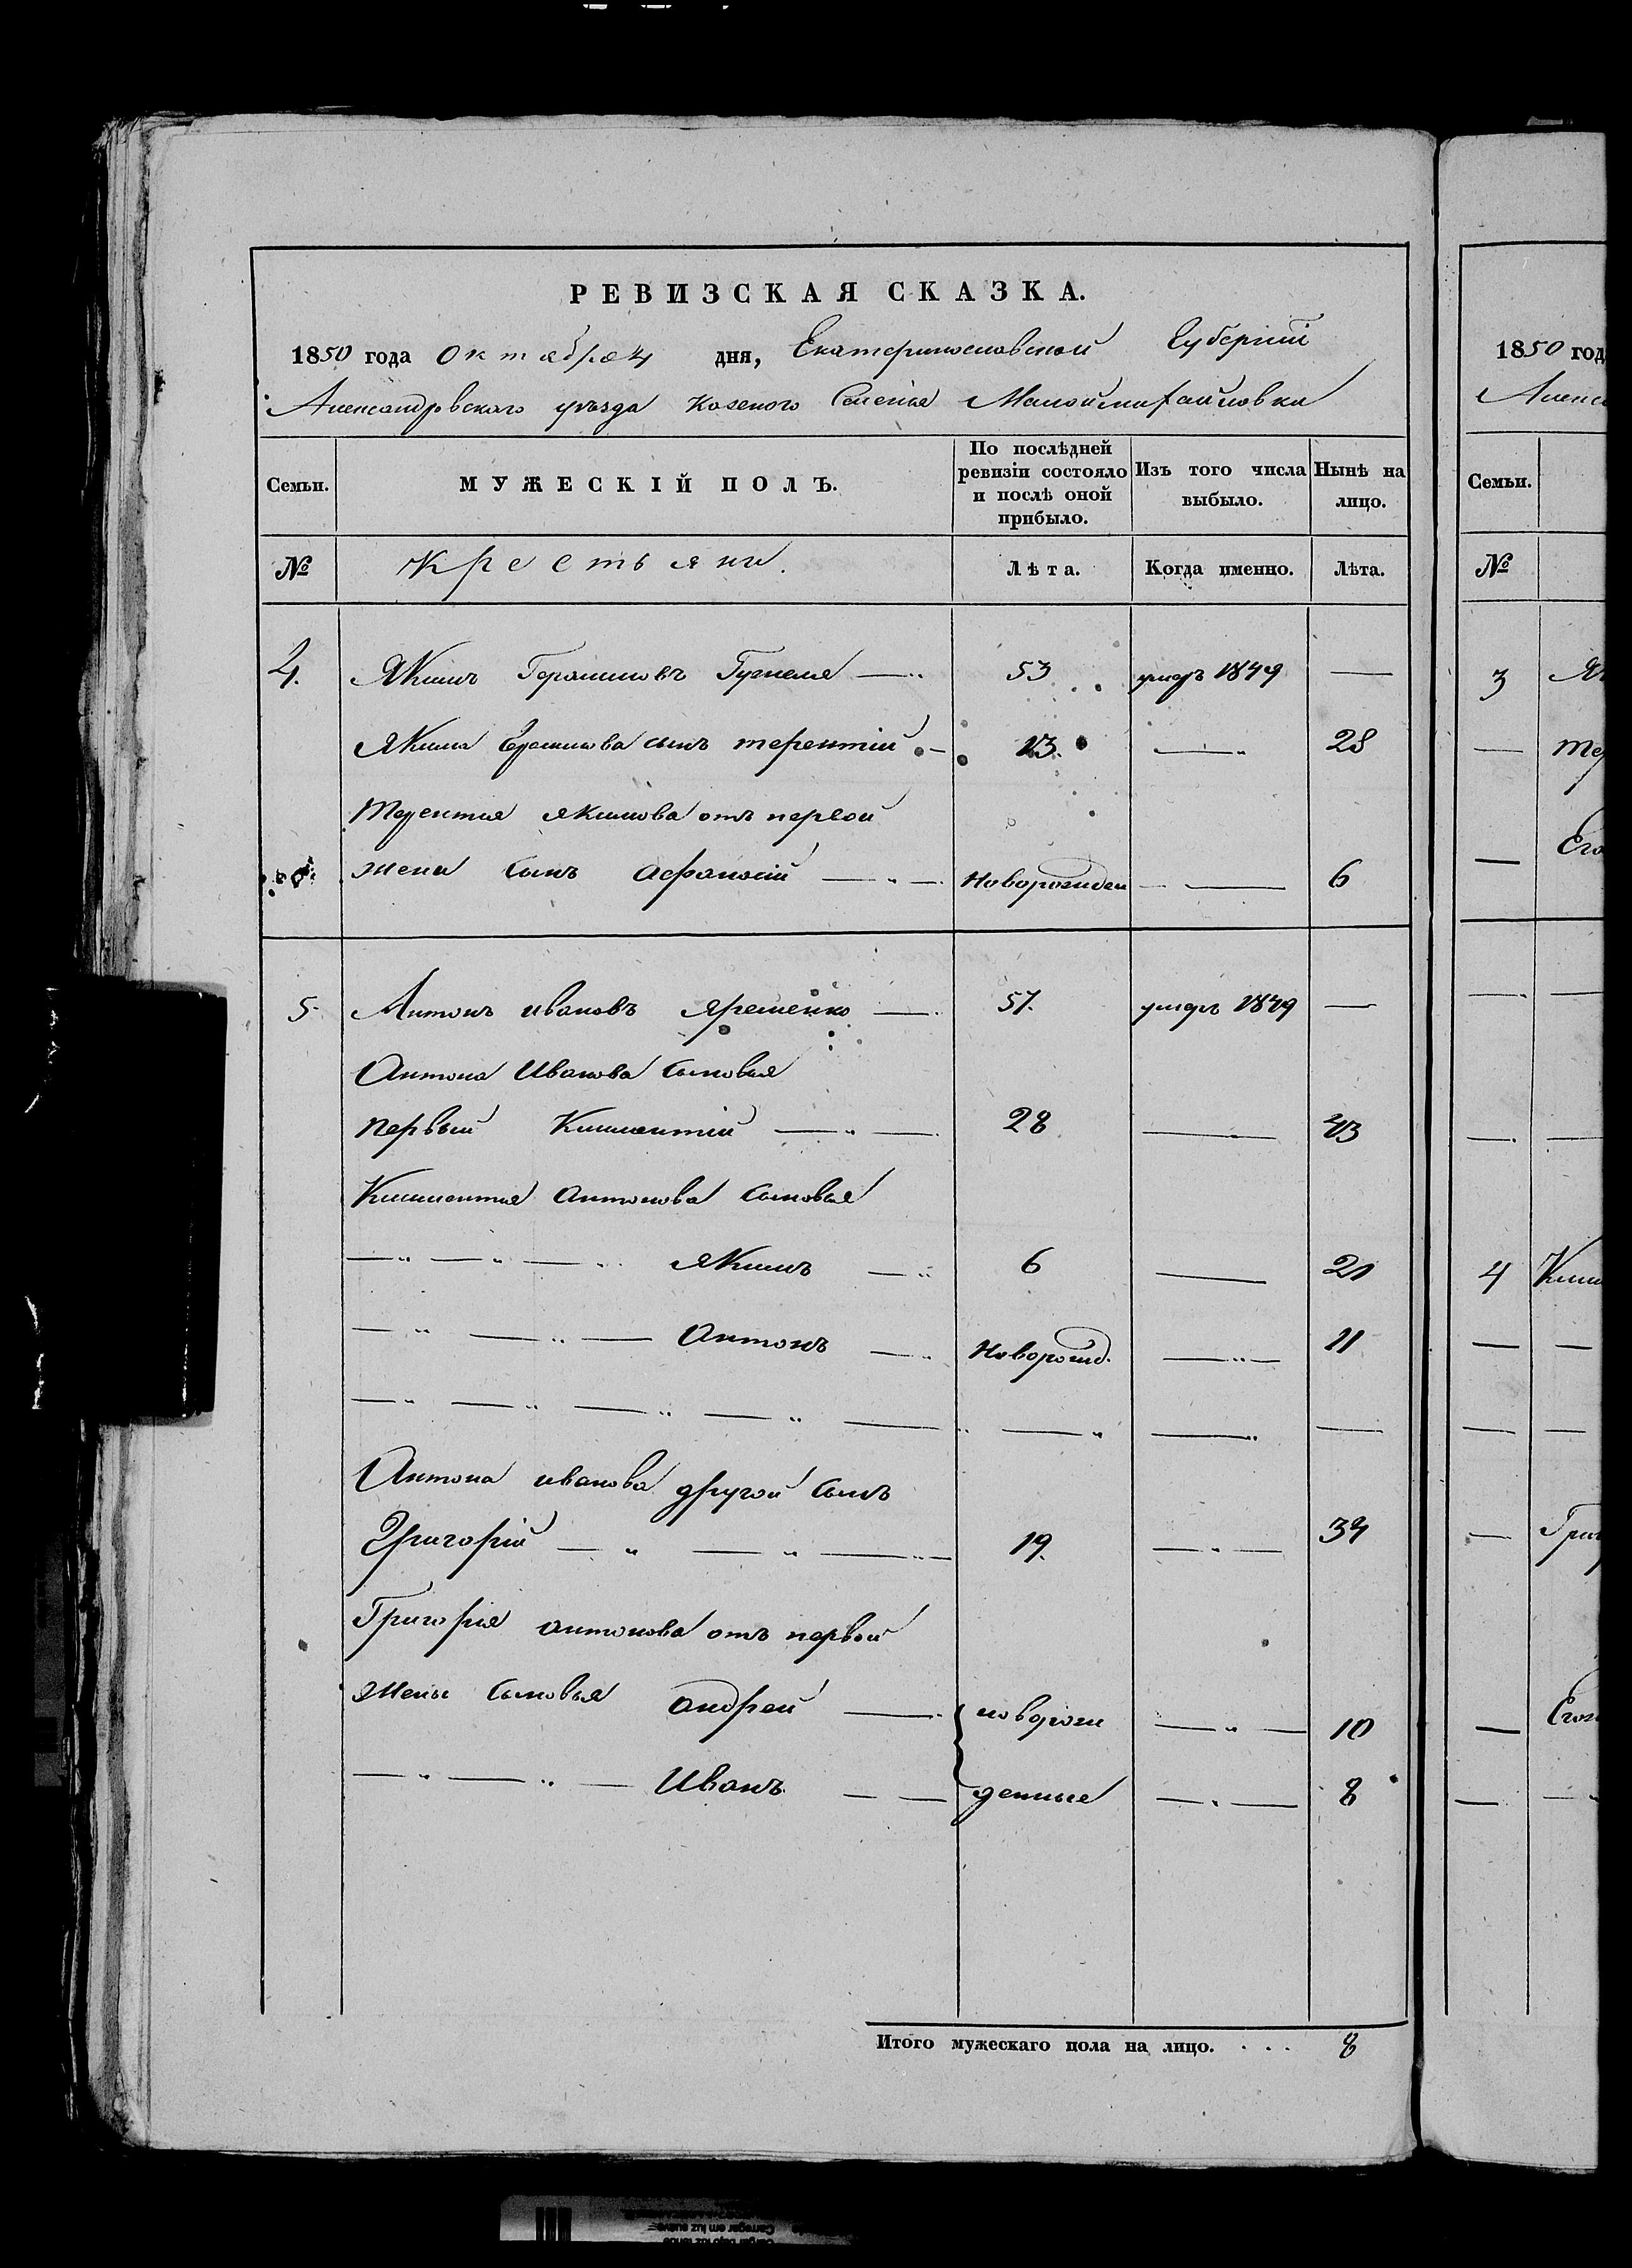 РЕВИЗСКАЯ СКАЗКА.
1850 года октября 4 дня, Екатеринославской Губернии
Александровского уезда Казеного Селенія Малоймихайловки
Семьи.
МУЖЕСКІЙ ПОЛЪ.
По послѣдней ревизіи состояло и послѣ оной прибыло.
Изъ того числа выбыло.
Нынѣ на лицо.
№
Крестьяни.
Лѣта.
Когда именно.
Лѣта.
4. Якимъ Герасимовъ — 53 умеръ 1849 —
Якима Герасимова сынъ терентий — 13. — 28
Терентия якимова отъ первой
жены сынъ Афанасий — Новорожден — 6
5. Антонъ ивановъ Яременко — 57. умеръ 1849 —
Антона Иванова сыновья
первый Климентій — 28 — 43
Климентия антонова сыновья
— Якимъ — 6 — 21
— Антонъ — Новорожд. — 11
Антона иванова другой сынъ
Григорій — 19. — 34
Григорія антонова отъ первой
жены сыновья андрей — новорож — 10
— Иванъ — денные — 8
Итого мужескаго пола на лицо. . . . 8
1850 год
Семьи.
№
3
4